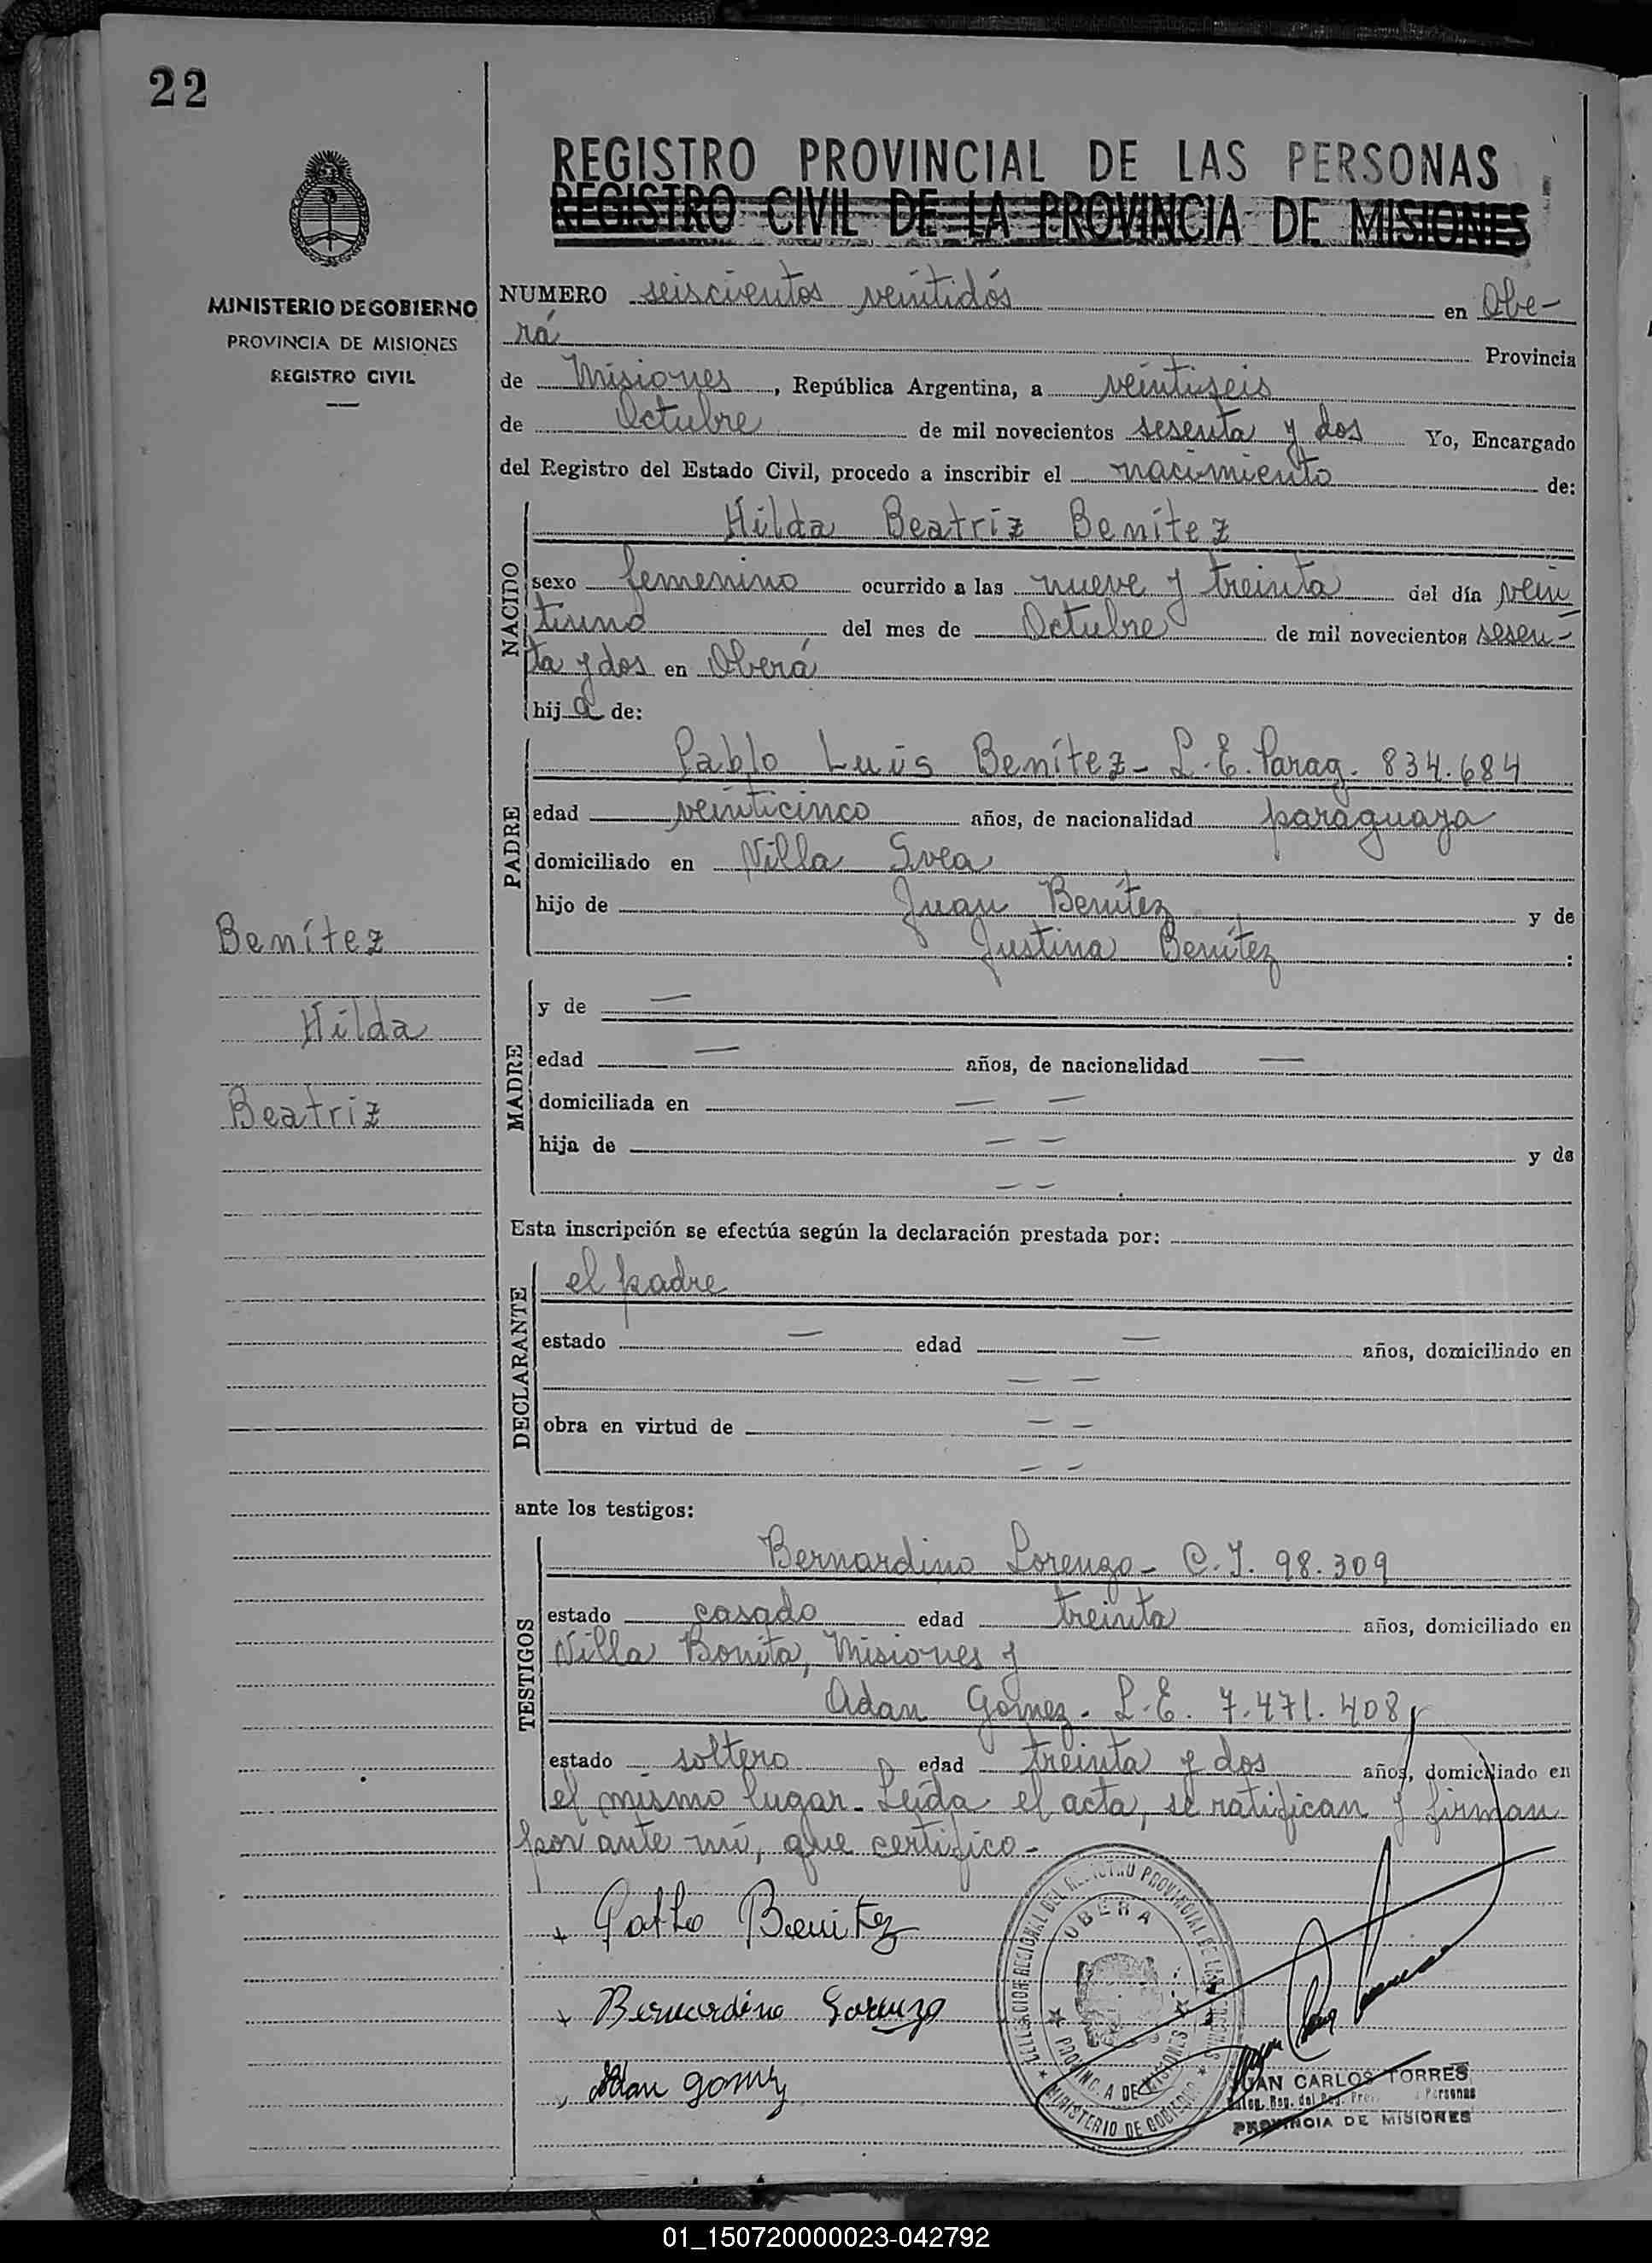 22
REGISTRO PROVINCIAL DE LAS PERSONAS
REGISTRO CIVIL DE LA PROVINCIA DE MISIONES
MINISTERIO DE GOBIERNO
PROVINCIA DE MISIONES
REGISTRO CIVIL
NUMERO seiscientos veintidós en Obe-
rá Provincia
de Misiones, República Argentina, a veintiseis
de Octubre de mil novecientos sesenta y dos Yo, Encargado
del Registro del Estado Civil, procedo a inscribir el nacimiento de:
NACIDO
Hilda Beatriz Benítez
sexo femenino ocurrido a las nueve y treinta del día vein
tiuno del mes de Octubre de mil novecientos sesen-
ta y dos en Oberá
hija de:
PADRE
Pablo Luis Benítez - L.E. Parag. 834.684
edad veinticinco años, de nacionalidad paraguaya
domiciliado en Villa Svea
hijo de Juan Benítez y de
Justina Benítez :
Benítez
Hilda
Beatriz
MADRE
y de —
edad — años, de nacionalidad —
domiciliada en — —
hija de — — y de
— —
Esta inscripción se efectúa según la declaración prestada por:
DECLARANTE
el padre
estado — edad — años, domiciliado en
— —
obra en virtud de — —
— —
ante los testigos:
TESTIGOS
Bernardino Lorenzo - C.I. 98.309
estado casado edad treinta años, domiciliado en
Villa Bonita, Misiones y
Adan Gomez - L.E. 7.471.408,
estado soltero edad treinta y dos años, domiciliado en
el mismo lugar. Leída el acta, se ratifican y firman
por ante mí, que certifico-
Pablo Benitez
Bernardino Lorenzo
Adan gomez
DELEGACION REGIONAL DEL REGISTRO PROVINCIAL DE LAS PERSONAS
OBERA
PROVINCIA DE MISIONES
MINISTERIO DE GOBIERNO
JUAN CARLOS TORRES
Deleg. Reg. del Reg. Prov. Personas
PROVINCIA DE MISIONES
01_150720000023-042792